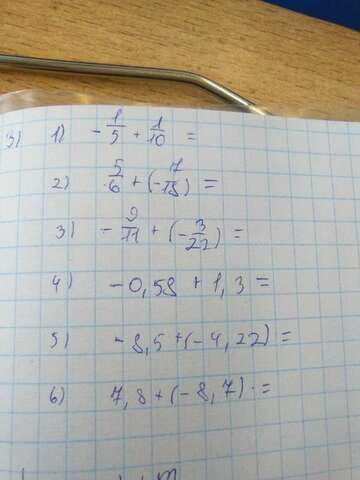 3) 1) -1/5 + 1/10 =
2) 5/6 + (-7/18) =
3) -9/11 + (-3/22) =
4) -0,58 + 1,3 =
5) -8,5 + (-4,22) =
6) 7,8 + (-8,7) =